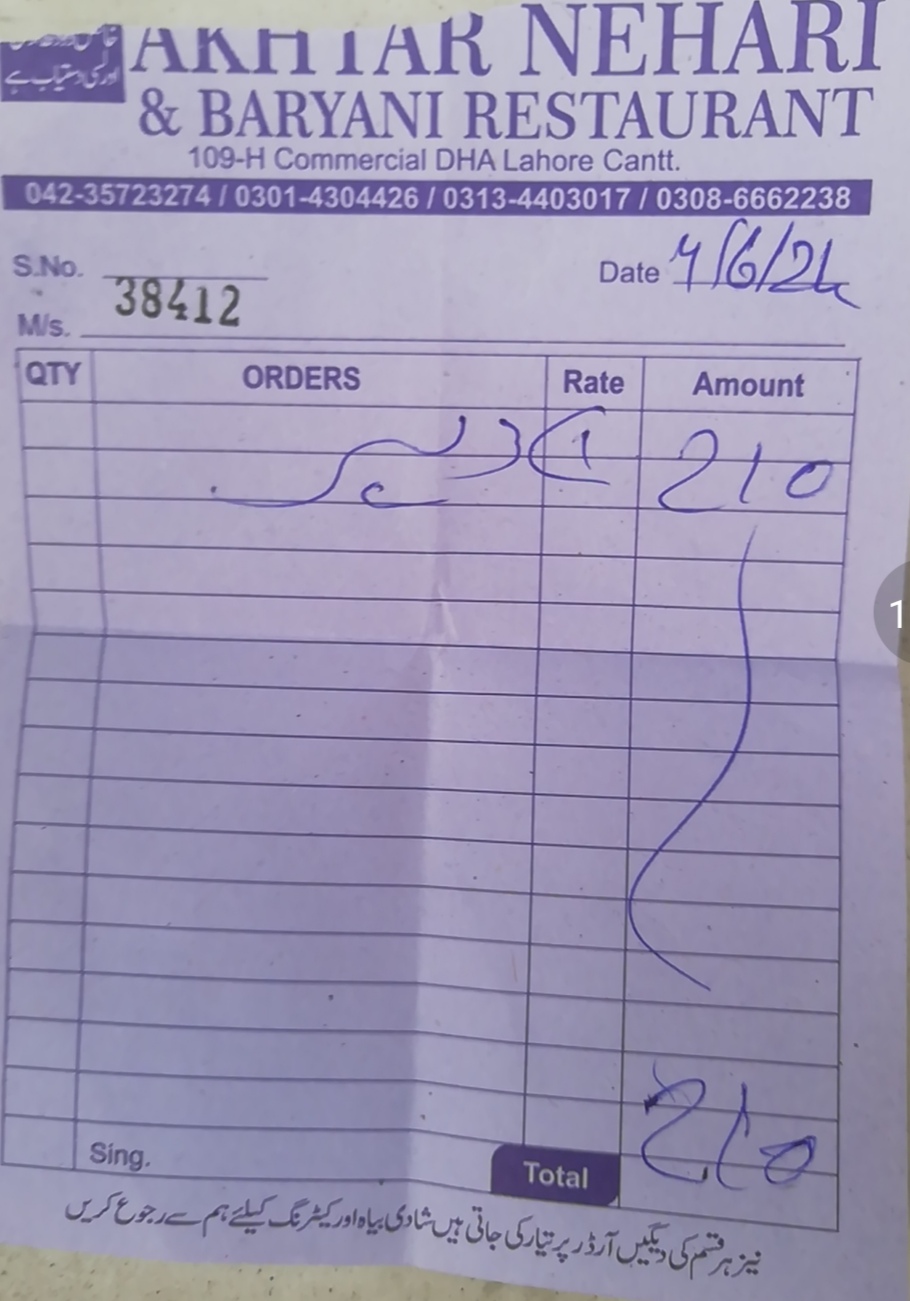 اور کی دستیاب ہے
AKHTAR NEHARI
& BARYANI RESTAURANT
109-H Commercial DHA Lahore Cantt.
042-35723274 / 0301-4304426 / 0313-4403017 / 0308-6662238
S.No. 38412
Date 4/6/24
M/s.
QTY ORDERS Rate Amount
1 210
Sing. Total 210
نیز ہر قسم کی دیگیں آرڈر پر تیار کی جاتی ہیں شادی بیاہ اور کیٹرنگ کیلئے ہم سے رجوع کریں
1